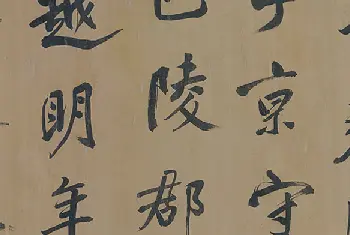 子京守
巴陵郡
越明年